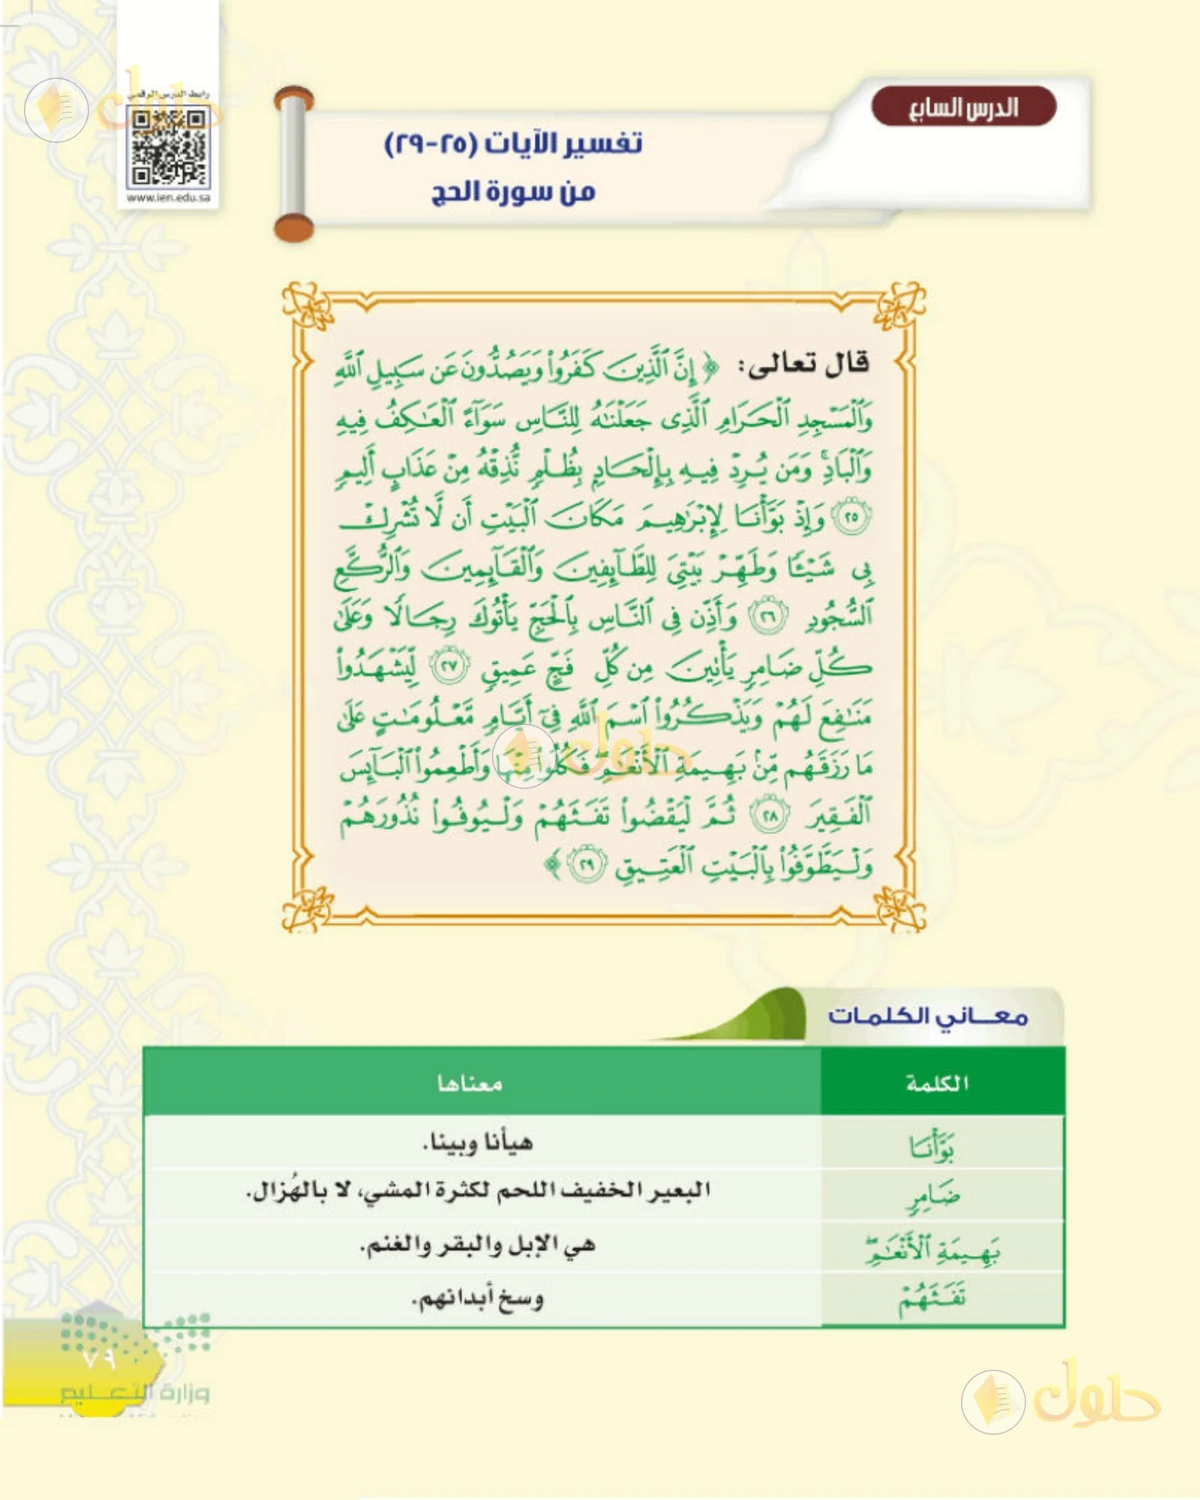 الدرس السابع
رابط الدرس الرقمي
www.ien.edu.sa
تفسير الآيات (٢٥-٢٩)
من سورة الحج
قال تعالى: ﴿ إِنَّ ٱلَّذِينَ كَفَرُوا۟ وَيَصُدُّونَ عَن سَبِيلِ ٱللَّهِ
وَٱلْمَسْجِدِ ٱلْحَرَامِ ٱلَّذِى جَعَلْنَٰهُ لِلنَّاسِ سَوَآءً ٱلْعَٰكِفُ فِيهِ
وَٱلْبَادِ ۚ وَمَن يُرِدْ فِيهِ بِإِلْحَادٍۭ بِظُلْمٍ نُّذِقْهُ مِنْ عَذَابٍ أَلِيمٍ
٢٥ وَإِذْ بَوَّأْنَا لِإِبْرَٰهِيمَ مَكَانَ ٱلْبَيْتِ أَن لَّا تُشْرِكْ
بِى شَيْـًٔا وَطَهِّرْ بَيْتِىَ لِلطَّآئِفِينَ وَٱلْقَآئِمِينَ وَٱلرُّكَّعِ
ٱلسُّجُودِ ٢٦ وَأَذِّن فِى ٱلنَّاسِ بِٱلْحَجِّ يَأْتُوكَ رِجَالًا وَعَلَىٰ
كُلِّ ضَامِرٍ يَأْتِينَ مِن كُلِّ فَجٍّ عَمِيقٍ ٢٧ لِّيَشْهَدُوا۟
مَنَٰفِعَ لَهُمْ وَيَذْكُرُوا۟ ٱسْمَ ٱللَّهِ فِىٓ أَيَّامٍ مَّعْلُومَٰتٍ عَلَىٰ
مَا رَزَقَهُم مِّنۢ بَهِيمَةِ ٱلْأَنْعَٰمِ ۖ فَكُلُوا۟ مِنْهَا وَأَطْعِمُوا۟ ٱلْبَآئِسَ
ٱلْفَقِيرَ ٢٨ ثُمَّ لْيَقْضُوا۟ تَفَثَهُمْ وَلْيُوفُوا۟ نُذُورَهُمْ
وَلْيَطَّوَّفُوا۟ بِٱلْبَيْتِ ٱلْعَتِيقِ ٢٩ ﴾
معاني الكلمات
الكلمة معناها
بَوَّأْنَا هيأنا وبينا.
ضَامِرٍ البعير الخفيف اللحم لكثرة المشي، لا بالهُزال.
بَهِيمَةِ ٱلْأَنْعَٰمِ ۖ هي الإبل والبقر والغنم.
تَفَثَهُمْ وسخ أبدانهم.
٧٩
وزارة التعليم
حلول
حلول
حلول